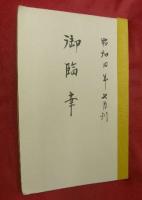 昭和四年七月刊
御臨幸